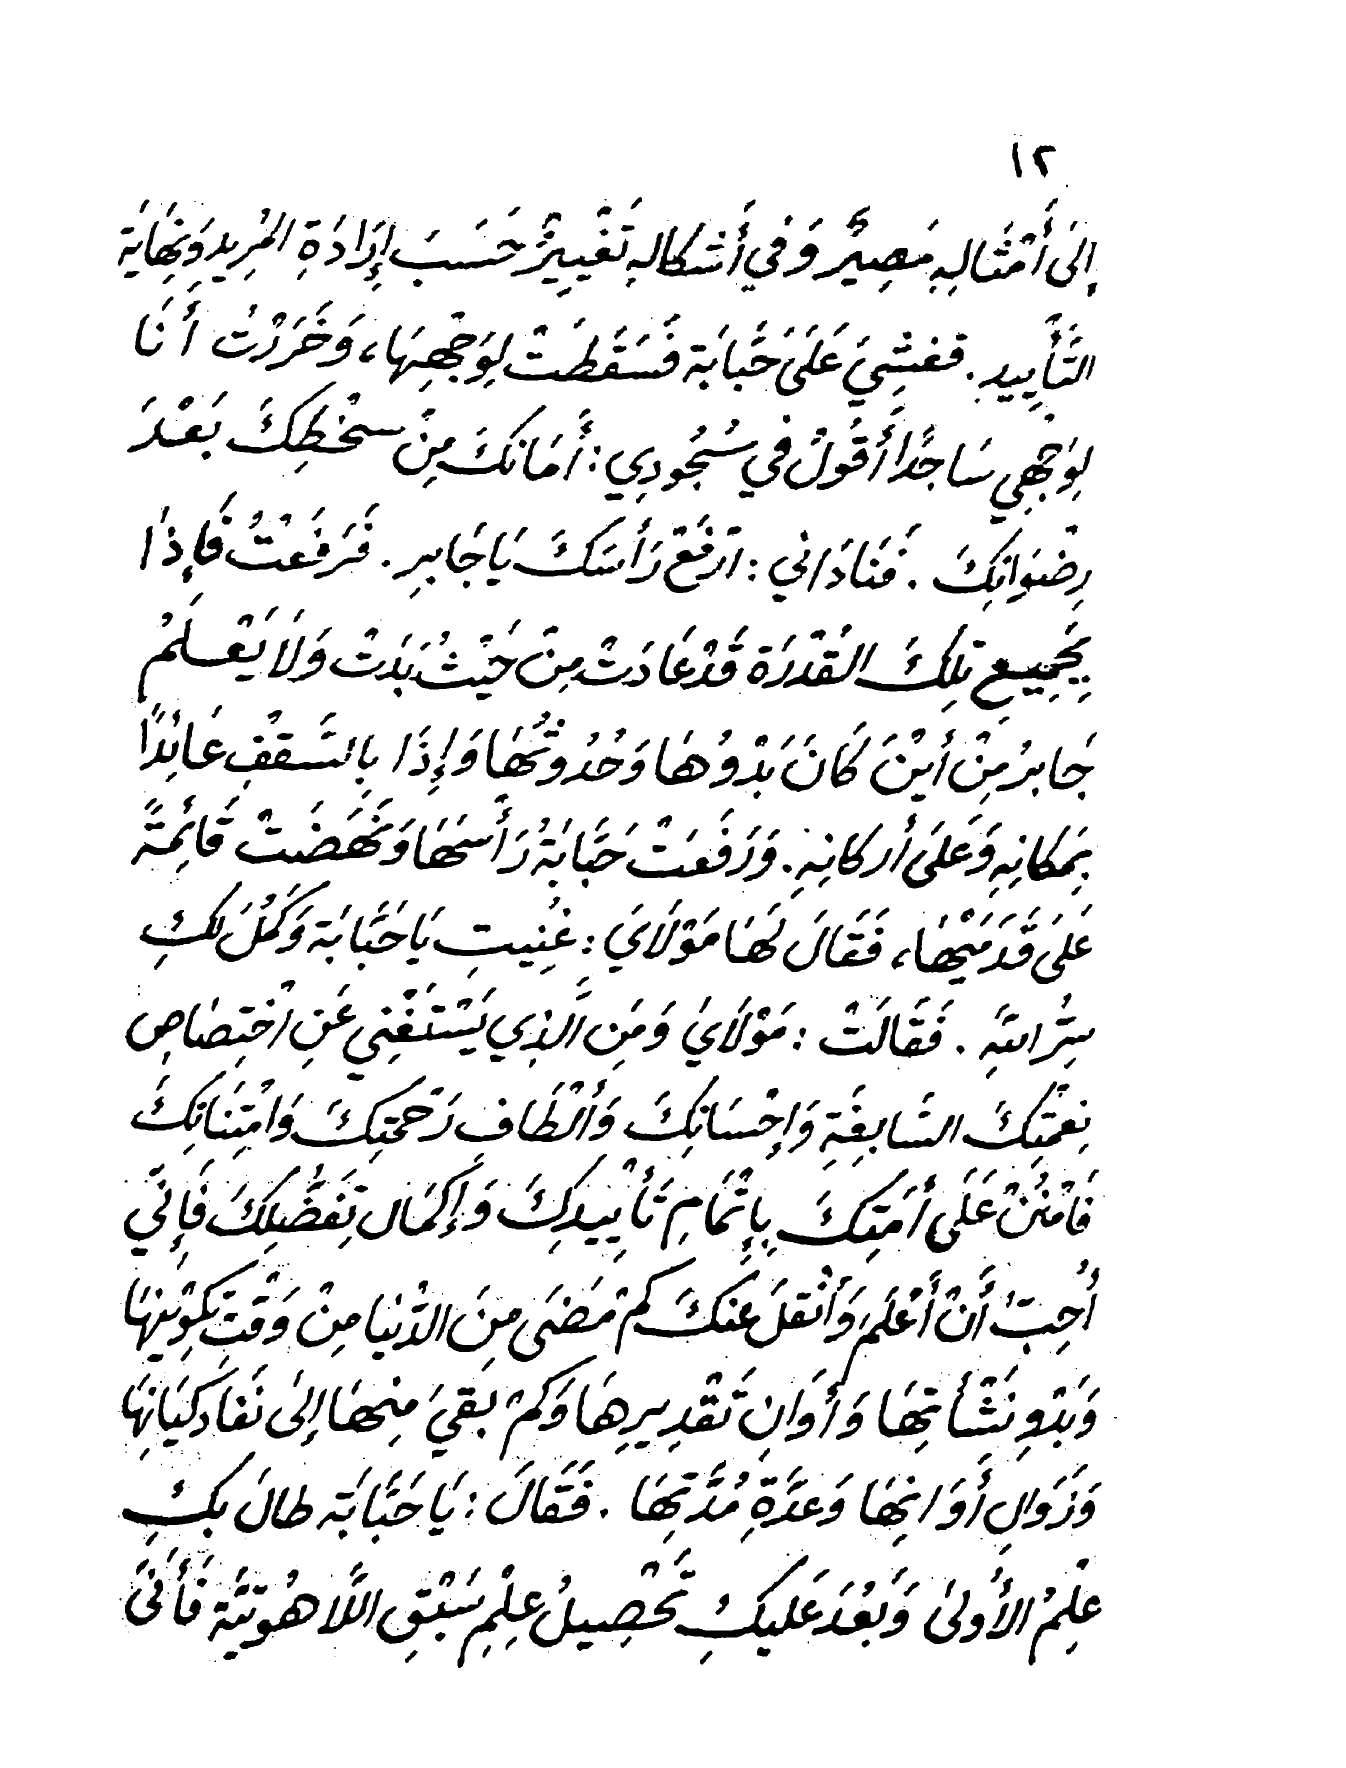 ١٢
إِلَى أَمْثَالِهِ مَصِيرٌ وَفِي أَشكالِهِ تَغْيِيرٌ حَسَبَ إِرَادَةِ المُرِيدِ وَنِهَايَة
التَّأْيِيدِ. فغشِيَ عَلَى حَبَّابَة فَسَقَطَتْ لِوَجْهِهَا، وَخَرَرْتُ أَنَا
لِوَجْهِي سَاجِدًا أَقُولُ فِي سُجُودِي : أَمَانَكَ مِنْ سخْطِكَ بَعْدَ
رِضْوَانِكَ . فَنَادَانِي : ارْفَعْ رَأْسَكَ يَا جَابِرِ. فَرَفَعْتُ فَإِذَا
بِجَمِيعِ تِلكَ القُدْرَة قَدْ عَادَتْ مِنْ حَيْثُ بَدَتْ وَلَا يَعْلَمُ
جَابِرُ مِنْ أَيْنَ كَانَ بَدْوُهَا وَحُدُوثُهَا وَإِذَا بِالسَّقفِ عَائِدًا
بِمَكانِهِ وَعَلَى أَركانِهِ. وَرَفَعَتْ حَبَّابَةُ رَأْسَهَا وَنَهَضَتْ قَائِمَةً
عَلَى قَدَمَيْهَا، فَقَالَ لَهَا مَوْلَايَ : غُنِيتِ يَا حَبَّابَة وَكَمُلَ لَكِ
سِرُّ اللهِ . فَقَالَتْ : مَوْلَايَ وَمَنِ الَّذِي يَسْتَغْنِي عَنِ اخْتِصَاصِ
نِعْمَتِكَ السَّابِغَةِ وَإِحْسَانِكَ وَأَلْطَافِ رَحْمَتِكَ وَامْتِنَانِكَ
فَامْنُنْ عَلَى أَمَتِكَ بِإِتْمَامِ تَأْيِيدِكَ وَإِكمَالِ تَفَضُّلِكَ فَإِنِّي
أُحِبُّ أَنْ أَعْلَمَ وَأَنْقلَ عَنكَ كمْ مَضَى مِنَ الدُّنْيَا مِنْ وَقْتِ تَكْوِيْنِهَا
وَبَدْوِ نَشْأَتِهَا وَأَوَانِ تَقْدِيرِهَا وَكَمْ بَقِيَ مِنهَا إِلَى نَفَادِ كِيَانِهَا
وَزَوَالِ أَوَانِهَا وَعدَّةِ مُدَّتِهَا . فَقَالَ : يَا حَبَّابَة طالَ بِكِ
عِلْمُ الأُولَى وَبَعُدَ عَليكِ تَحْصِيلُ عِلْمِ سَبْقِ اللَّاهُوتِيَّةِ فَأَنَّى